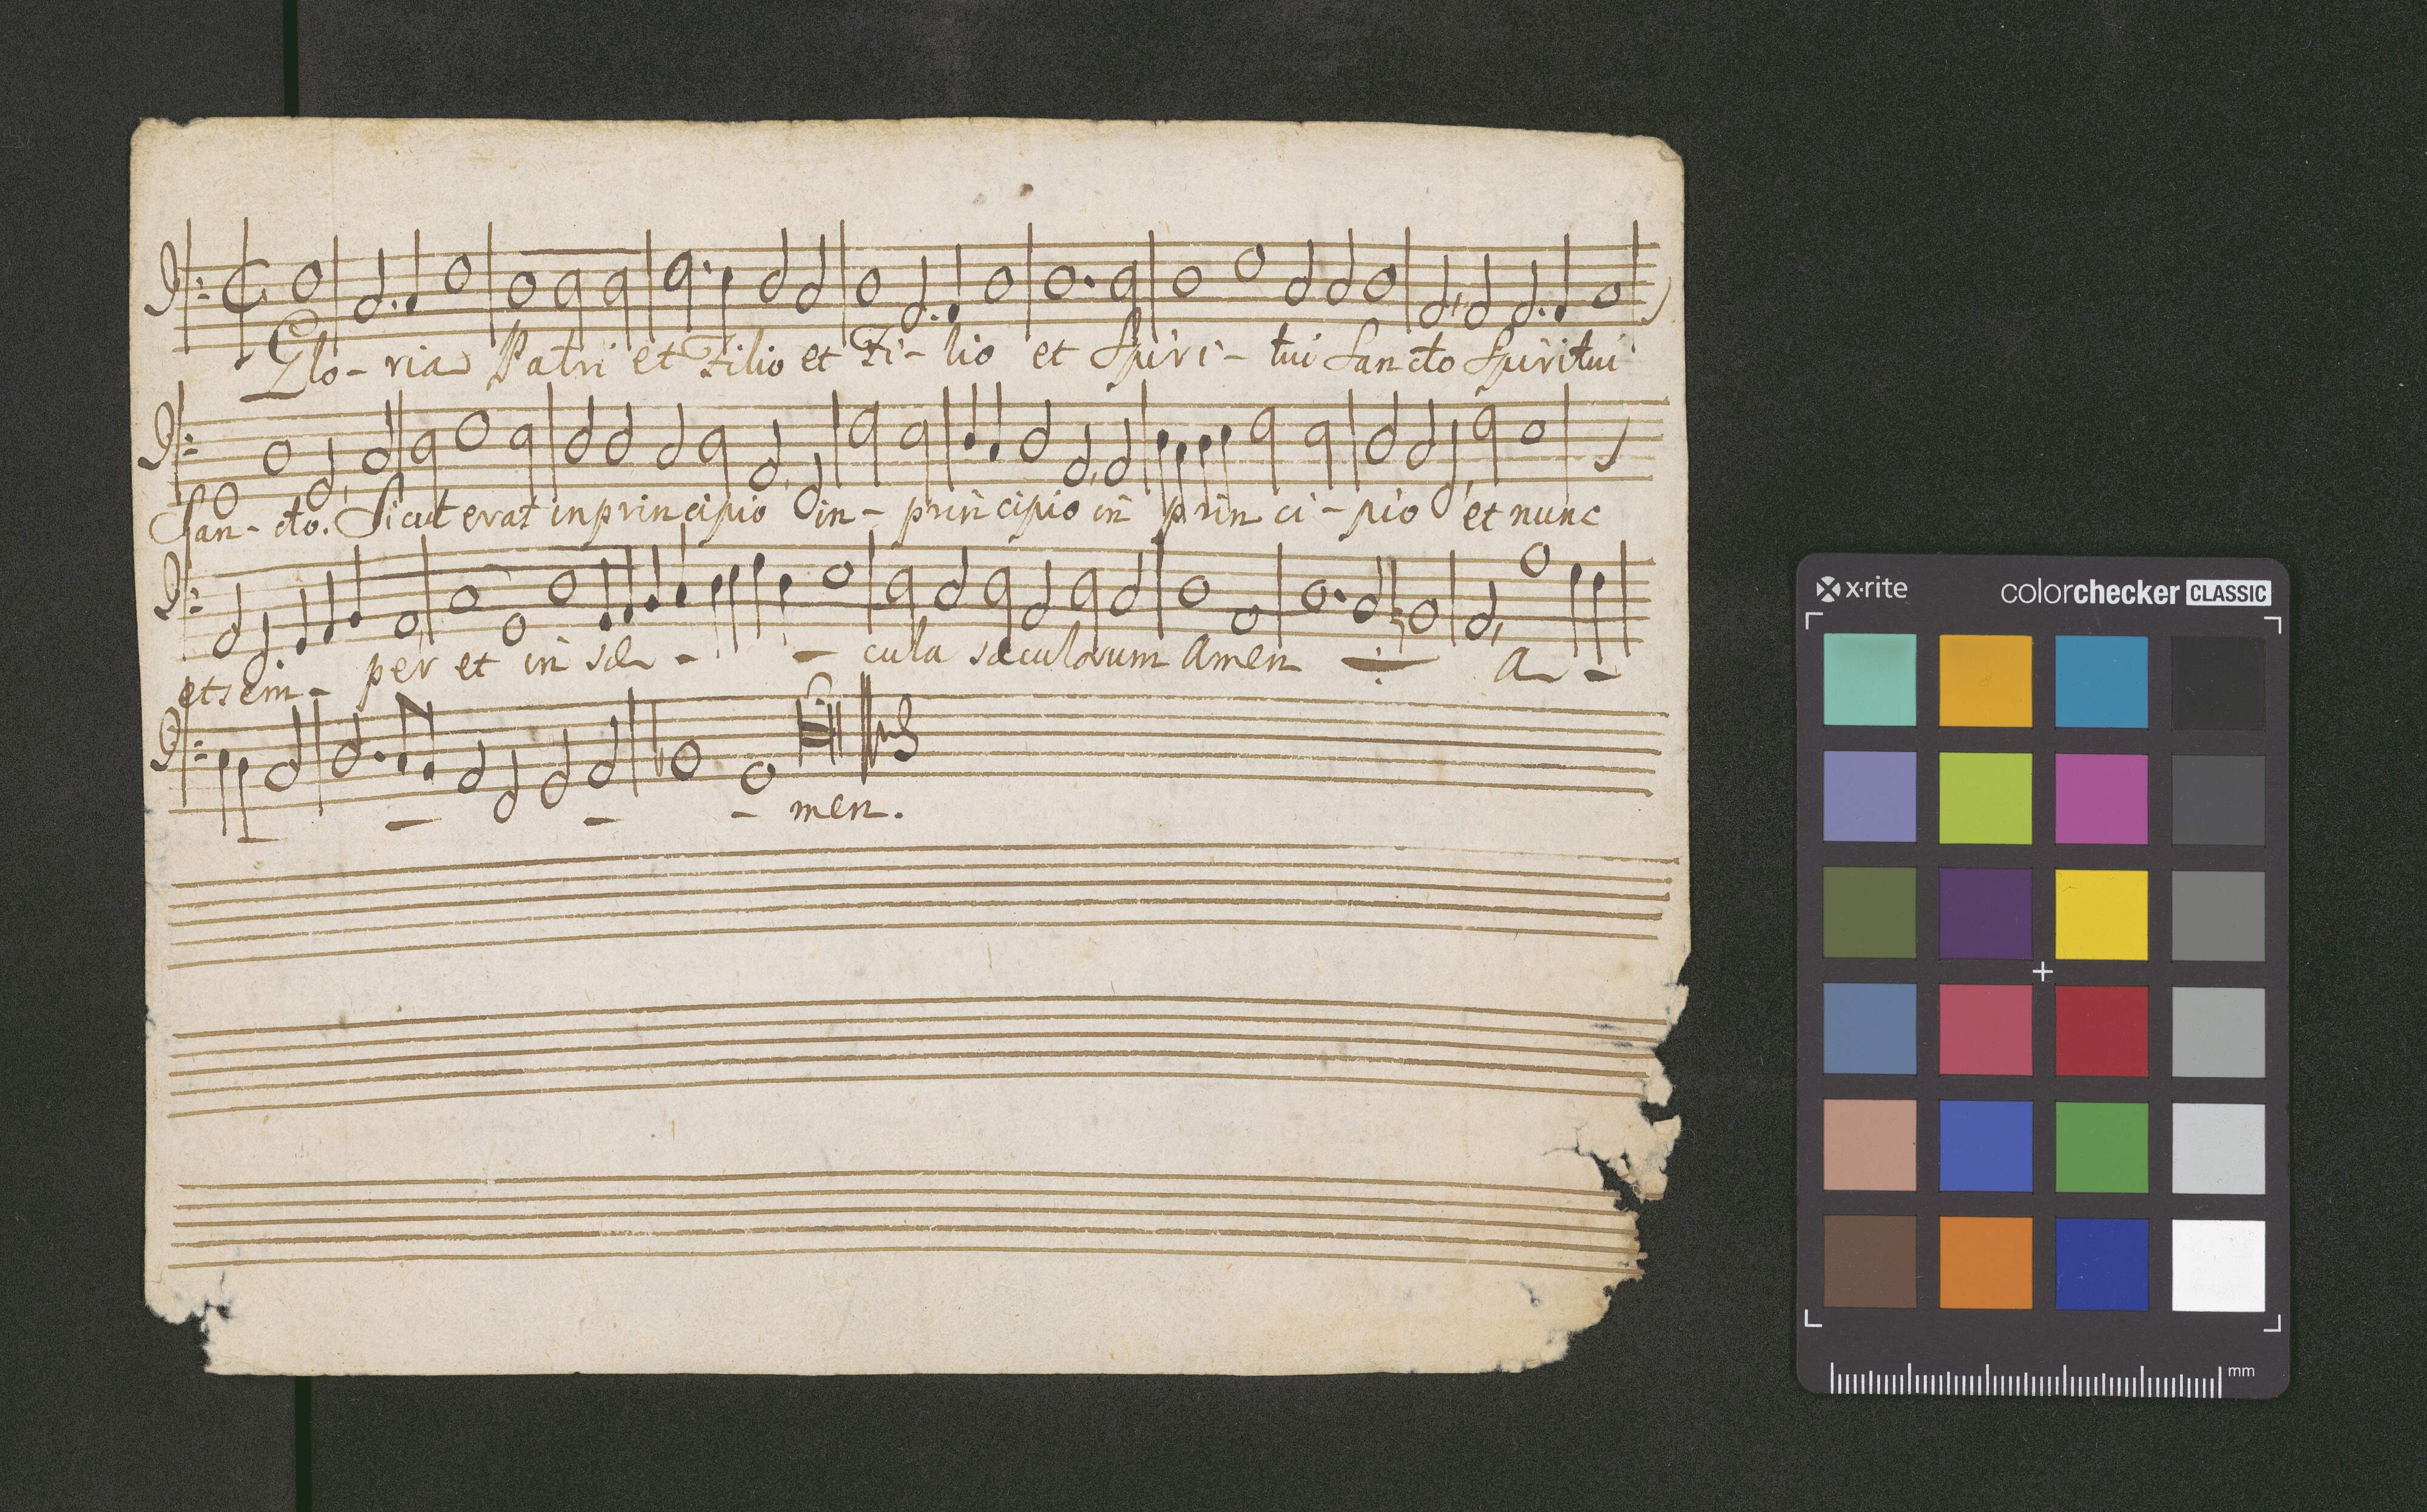 Glo- ria Patri et Filio et Fi- lio et Spiri- tui Sancto Spiritui
San- cto. Sicut erat in principio in- principio in prin ci- pio et nunc
et sem- per et in sæ - - cula sæculorum Amen A -
- - - - men.
x·rite colorchecker CLASSIC
mm